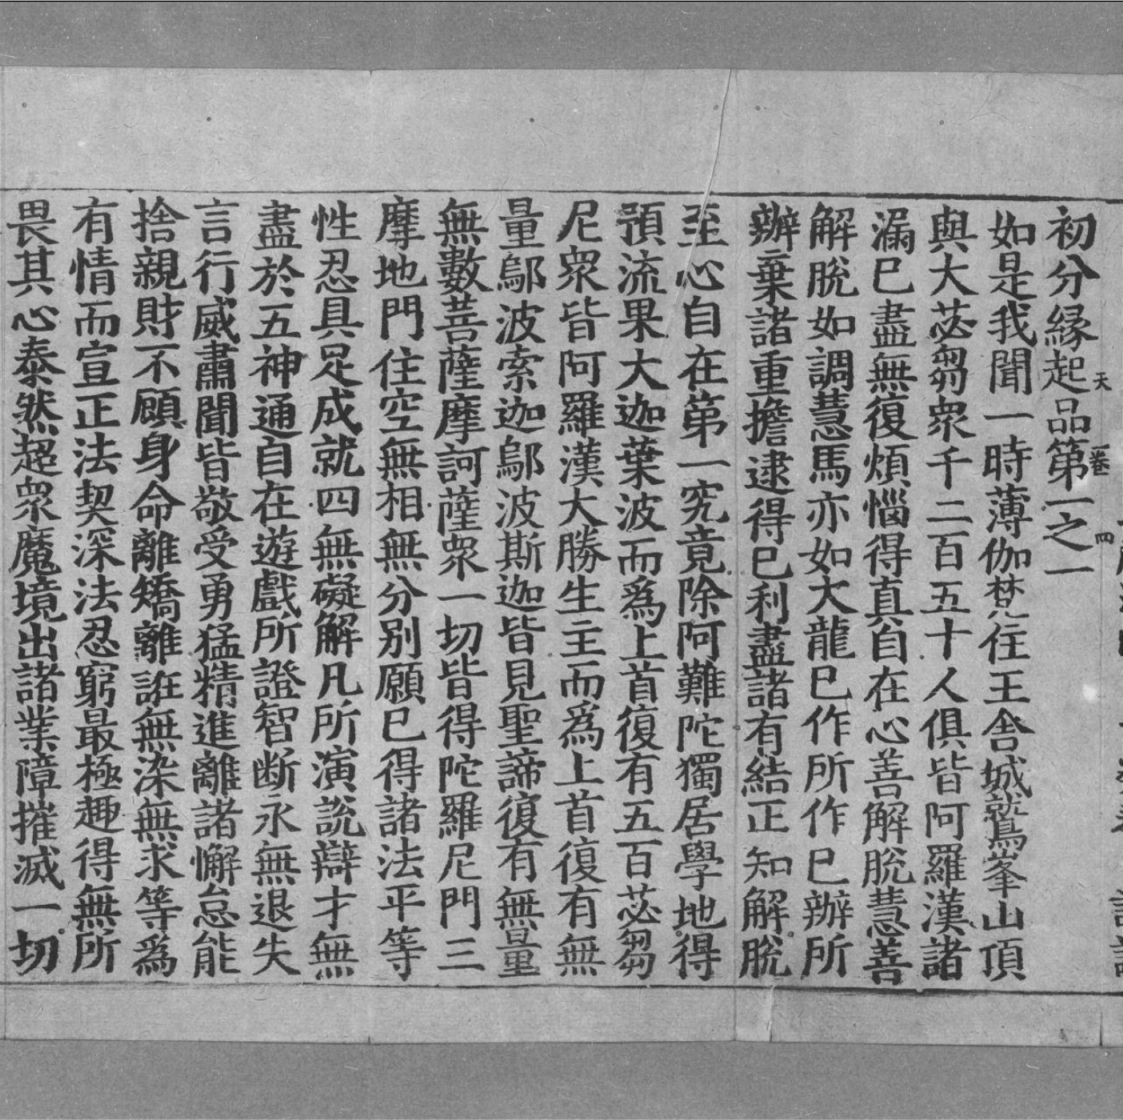 天 一卷 四
初分緣起品第一之一
如是我聞一時薄伽梵住王舍城鷲峯山頂
與大苾芻衆千二百五十人俱皆阿羅漢諸
漏已盡無復煩惱得真自在心善解脫慧善
解脫如調慧馬亦如大龍已作所作已辦所
辦棄諸重擔逮得已利盡諸有結正知解脫
至心自在第一究竟除阿難陀獨居學地得
預流果大迦葉波而爲上首復有五百苾芻
尼衆皆阿羅漢大勝生主而爲上首復有無
量鄔波索迦鄔波斯迦皆見聖諦復有無量
無數菩薩摩訶薩衆一切皆得陀羅尼門三
摩地門住空無相無分別願已得諸法平等
性忍具足成就四無礙解凡所演說辯才無
盡於五神通自在遊戲所證智断永無退失
言行威肅聞皆敬受勇猛精進離諸懈怠能
捨親財不顧身命離矯離誑無染無求等爲
有情而宣正法契深法忍窮最極趣得無所
畏其心泰然超衆魔境出諸業障摧滅一切